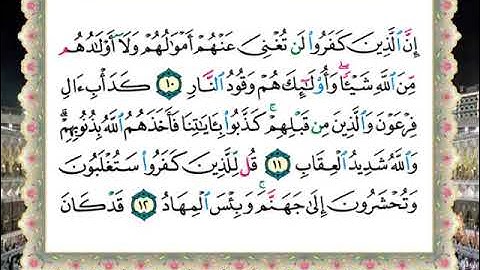 إِنَّ الَّذِينَ كَفَرُوا لَن تُغْنِيَ عَنْهُمْ أَمْوَالُهُمْ وَلَا أَوْلَادُهُم
مِّنَ اللَّهِ شَيْئًا ۖ وَأُولَٰئِكَ هُمْ وَقُودُ النَّارِ ١٠ كَدَأْبِ ءَالِ
فِرْعَوْنَ وَالَّذِينَ مِن قَبْلِهِمْ ۚ كَذَّبُوا بِـَٔايَاتِنَا فَأَخَذَهُمُ اللَّهُ بِذُنُوبِهِمْ ۗ
وَاللَّهُ شَدِيدُ الْعِقَابِ ١١ قُل لِّلَّذِينَ كَفَرُوا سَتُغْلَبُونَ
وَتُحْشَرُونَ إِلَىٰ جَهَنَّمَ ۚ وَبِئْسَ الْمِهَادُ ١٢ قَدْ كَانَ